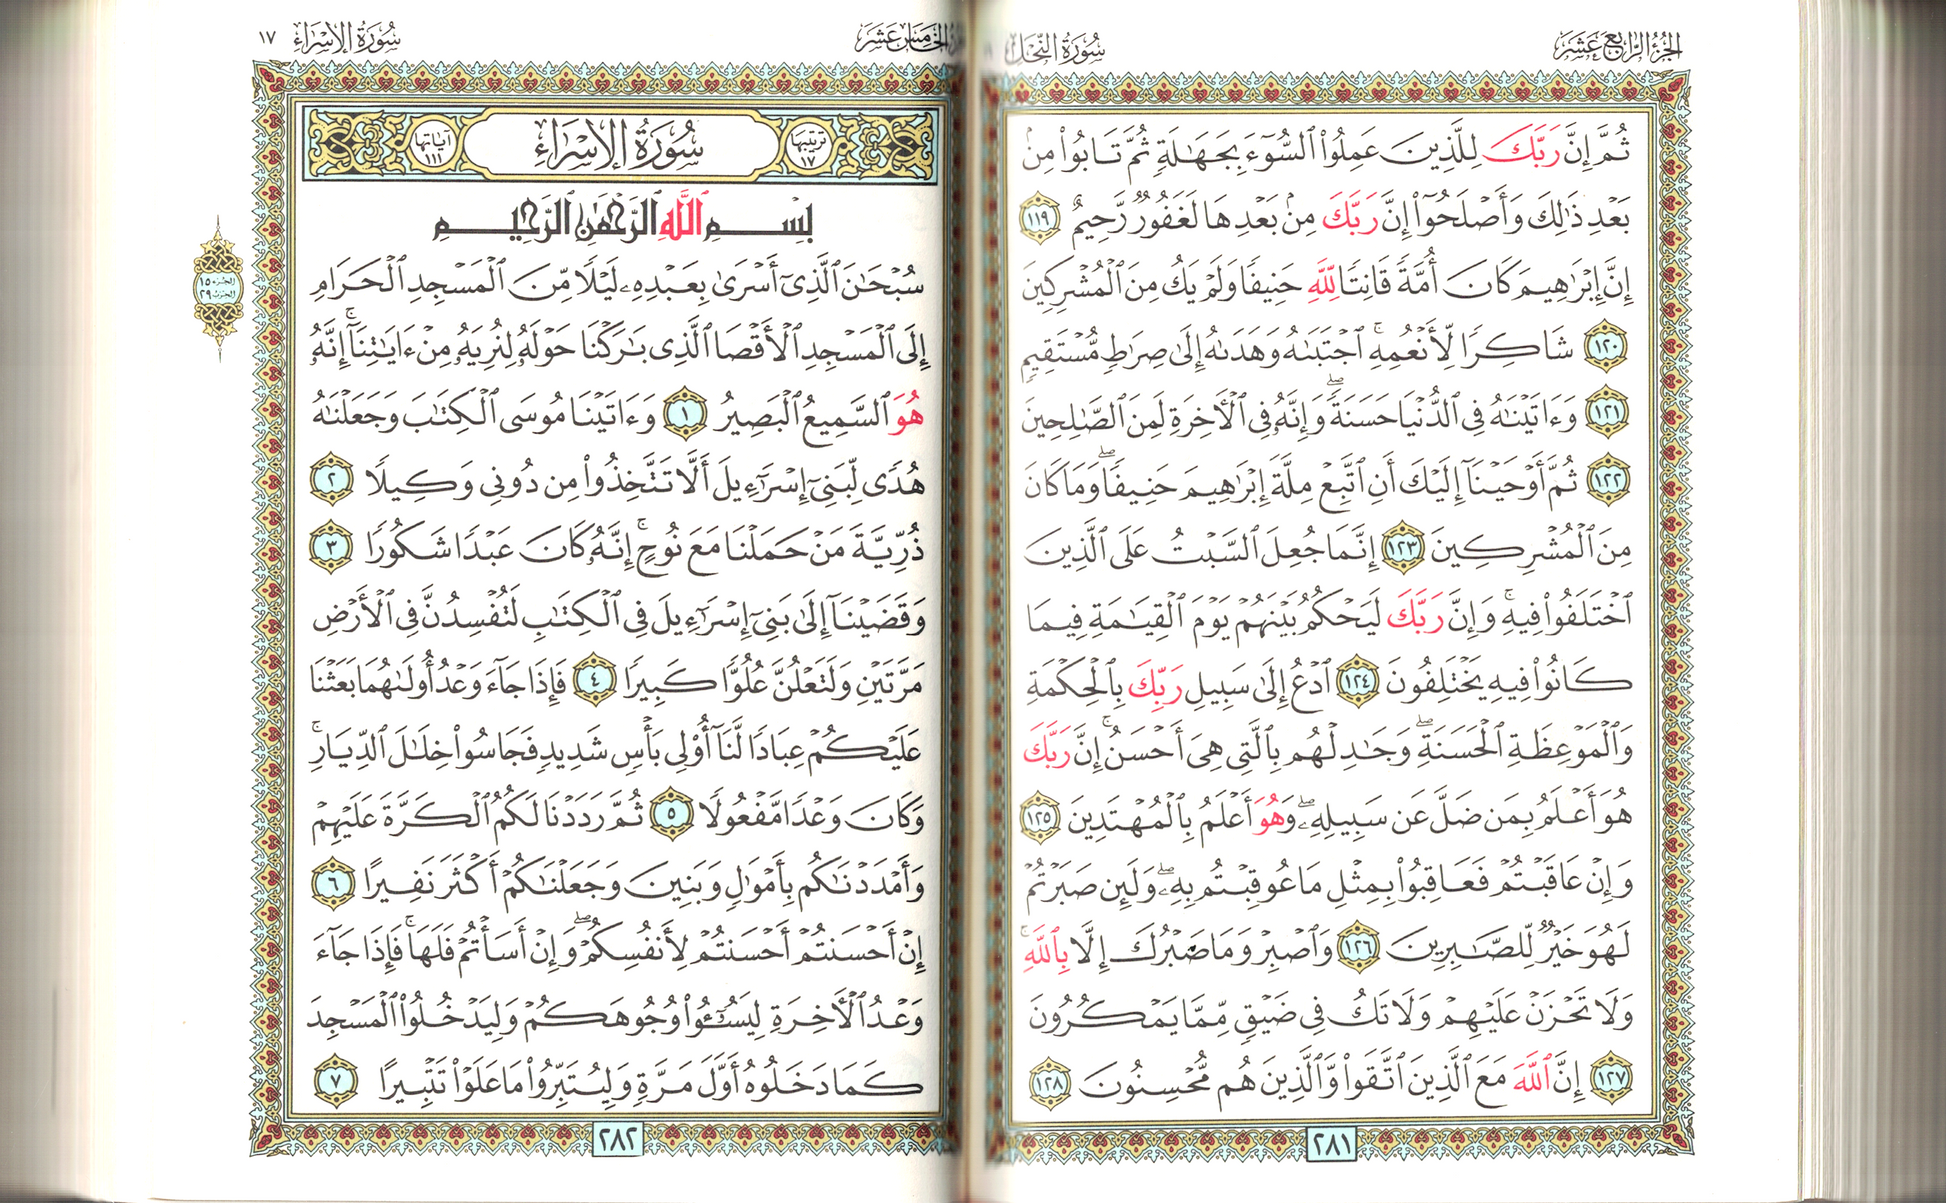 الجزء الرابع عشر
سورة النحل
ثُمَّ إِنَّ رَبَّكَ لِلَّذِينَ عَمِلُوا۟ ٱلسُّوٓءَ بِجَهَـٰلَةٍ ثُمَّ تَابُوا۟ مِنۢ
بَعْدِ ذَٰلِكَ وَأَصْلَحُوٓا۟ إِنَّ رَبَّكَ مِنۢ بَعْدِهَا لَغَفُورٌ رَّحِيمٌ ١١٩
إِنَّ إِبْرَٰهِيمَ كَانَ أُمَّةً قَانِتًا لِّلَّهِ حَنِيفًا وَلَمْ يَكُ مِنَ ٱلْمُشْرِكِينَ
١٢٠ شَاكِرًا لِّأَنْعُمِهِ ۚ ٱجْتَبَىٰهُ وَهَدَىٰهُ إِلَىٰ صِرَٰطٍ مُّسْتَقِيمٍ
١٢١ وَءَاتَيْنَـٰهُ فِى ٱلدُّنْيَا حَسَنَةً ۖ وَإِنَّهُۥ فِى ٱلْـَٔاخِرَةِ لَمِنَ ٱلصَّـٰلِحِينَ
١٢٢ ثُمَّ أَوْحَيْنَآ إِلَيْكَ أَنِ ٱتَّبِعْ مِلَّةَ إِبْرَٰهِيمَ حَنِيفًا ۖ وَمَا كَانَ
مِنَ ٱلْمُشْرِكِينَ ١٢٣ إِنَّمَا جُعِلَ ٱلسَّبْتُ عَلَى ٱلَّذِينَ
ٱخْتَلَفُوا۟ فِيهِ ۚ وَإِنَّ رَبَّكَ لَيَحْكُمُ بَيْنَهُمْ يَوْمَ ٱلْقِيَـٰمَةِ فِيمَا
كَانُوا۟ فِيهِ يَخْتَلِفُونَ ١٢٤ ٱدْعُ إِلَىٰ سَبِيلِ رَبِّكَ بِٱلْحِكْمَةِ
وَٱلْمَوْعِظَةِ ٱلْحَسَنَةِ ۖ وَجَـٰدِلْهُم بِٱلَّتِى هِىَ أَحْسَنُ ۚ إِنَّ رَبَّكَ
هُوَ أَعْلَمُ بِمَن ضَلَّ عَن سَبِيلِهِۦ ۖ وَهُوَ أَعْلَمُ بِٱلْمُهْتَدِينَ ١٢٥
وَإِنْ عَاقَبْتُمْ فَعَاقِبُوا۟ بِمِثْلِ مَا عُوقِبْتُم بِهِۦ ۖ وَلَئِن صَبَرْتُمْ
لَهُوَ خَيْرٌ لِّلصَّـٰبِرِينَ ١٢٦ وَٱصْبِرْ وَمَا صَبْرُكَ إِلَّا بِٱللَّهِ ۚ
وَلَا تَحْزَنْ عَلَيْهِمْ وَلَا تَكُ فِى ضَيْقٍ مِّمَّا يَمْكُرُونَ
١٢٧ إِنَّ ٱللَّهَ مَعَ ٱلَّذِينَ ٱتَّقَوا۟ وَّٱلَّذِينَ هُم مُّحْسِنُونَ ١٢٨
٢٨١
الخامس عشر
سورة الإسراء ١٧
ترتيبها ١٧
سورة الإسراء
آياتها ١١١
بسم الله الرحمن الرحيم
سُبْحَـٰنَ ٱلَّذِىٓ أَسْرَىٰ بِعَبْدِهِۦ لَيْلًا مِّنَ ٱلْمَسْجِدِ ٱلْحَرَامِ
إِلَى ٱلْمَسْجِدِ ٱلْأَقْصَا ٱلَّذِى بَـٰرَكْنَا حَوْلَهُۥ لِنُرِيَهُۥ مِنْ ءَايَـٰتِنَآ ۚ إِنَّهُۥ
هُوَ ٱلسَّمِيعُ ٱلْبَصِيرُ ١ وَءَاتَيْنَا مُوسَى ٱلْكِتَـٰبَ وَجَعَلْنَـٰهُ
هُدًى لِّبَنِىٓ إِسْرَٰٓءِيلَ أَلَّا تَتَّخِذُوا۟ مِن دُونِى وَكِيلًا ٢
ذُرِّيَّةَ مَنْ حَمَلْنَا مَعَ نُوحٍ ۚ إِنَّهُۥ كَانَ عَبْدًا شَكُورًا ٣
وَقَضَيْنَآ إِلَىٰ بَنِىٓ إِسْرَٰٓءِيلَ فِى ٱلْكِتَـٰبِ لَتُفْسِدُنَّ فِى ٱلْأَرْضِ
مَرَّتَيْنِ وَلَتَعْلُنَّ عُلُوًّا كَبِيرًا ٤ فَإِذَا جَآءَ وَعْدُ أُولَىٰهُمَا بَعَثْنَا
عَلَيْكُمْ عِبَادًا لَّنَآ أُو۟لِى بَأْسٍ شَدِيدٍ فَجَاسُوا۟ خِلَـٰلَ ٱلدِّيَارِ ۚ
وَكَانَ وَعْدًا مَّفْعُولًا ٥ ثُمَّ رَدَدْنَا لَكُمُ ٱلْكَرَّةَ عَلَيْهِمْ
وَأَمْدَدْنَـٰكُم بِأَمْوَٰلٍ وَبَنِينَ وَجَعَلْنَـٰكُمْ أَكْثَرَ نَفِيرًا ٦
إِنْ أَحْسَنتُمْ أَحْسَنتُمْ لِأَنفُسِكُمْ ۖ وَإِنْ أَسَأْتُمْ فَلَهَا ۚ فَإِذَا جَآءَ
وَعْدُ ٱلْـَٔاخِرَةِ لِيَسُـۥٓـُٔوا۟ وُجُوهَكُمْ وَلِيَدْخُلُوا۟ ٱلْمَسْجِدَ
كَمَا دَخَلُوهُ أَوَّلَ مَرَّةٍ وَلِيُتَبِّرُوا۟ مَا عَلَوْا۟ تَتْبِيرًا ٧
الجزء ١٥
الحزب ٢٩
٢٨٢